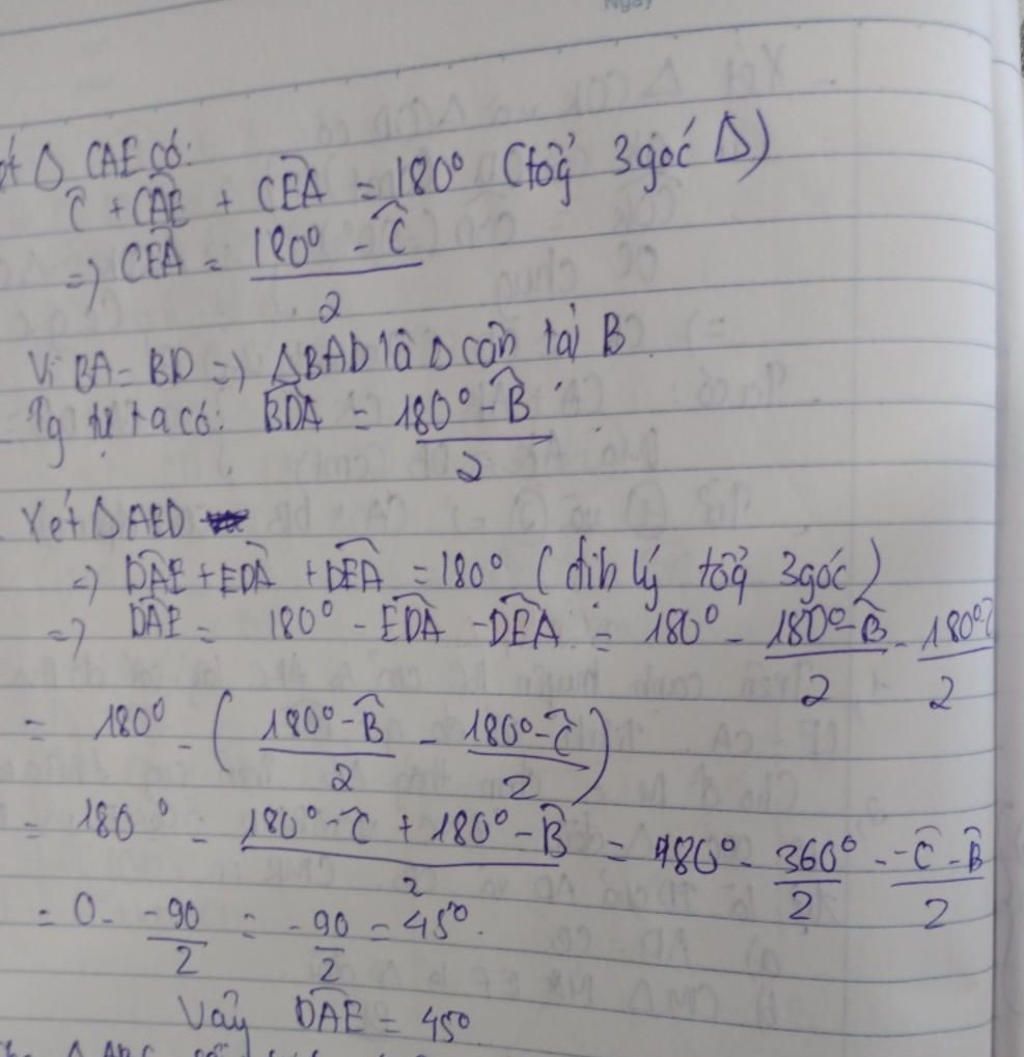 Ngày
ét Δ CAE có:
Ĉ + CÂE + CÊA = 180° (tổg 3 góc Δ)
=> CÊA = (180° - Ĉ)/2
Vì BA = BD => ΔBAD là Δ cân tại B.
Tg tự ta có: BD̂A = (180° - B̂)/2
Xét ΔAED
=> DÂE + ED̂A + DÊA = 180° (địh lý tổg 3 góc)
=> DÂE = 180° - ED̂A - DÊA = 180° - (180° - B̂)/2 - (180°-Ĉ)/2
= 180° - ((180° - B̂)/2 - (180° - Ĉ)/2)
= 180° - (180° - Ĉ + 180° - B̂)/2 = 180° - 360°/2 - (-Ĉ - B̂)/2
= 0 - -90/2 = -90/2 = 45°.
Vậy DÂE = 45°